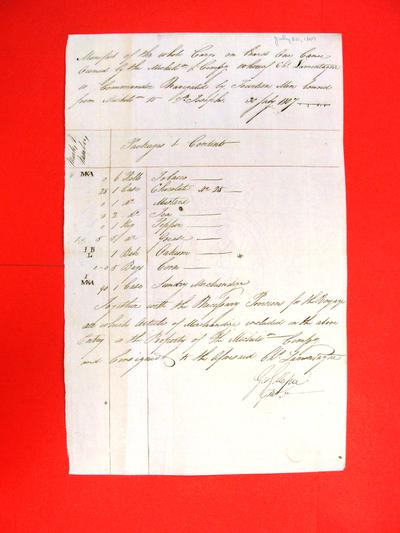 July 20, 1807
Manifest of the whole Cargo on Board One Canoe
Owned by the Michiln & Compy whereof Ch. Lamontagne
is Commander Navigated by Fourteen Men bound
from Michln to St. Joseph. 20 July 1807
Packages & Contents
M&A 0 6 Rolls Tobacco
28 1 Case Chocolate No 28
0 1 do Mustard
0 2 do Tea
0 1 Keg Pepper
5 do Grease
B L 1 Bale
5 Bags Corn
M&A 90 1 Case Sundry Merchandize
Together with the Necessary Provisions for the Voyage
all which Articles of Merchandise included in the above
Entry is the Property of the Michiln Compy
and Consigned to the aforesaid Ch. Lamontagne